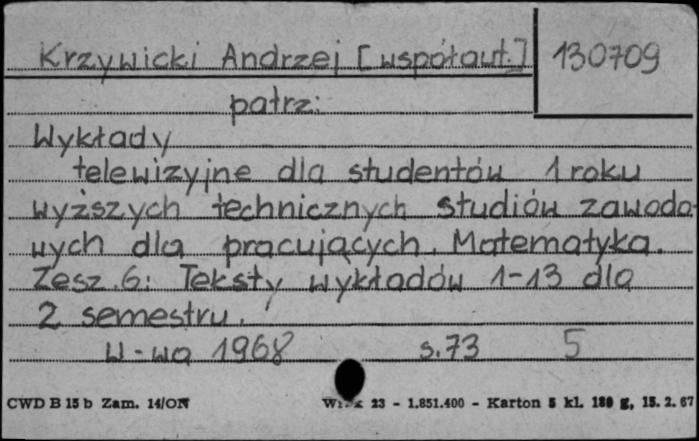 Krzywicki Andrzej [współaut.] 130709
patrz:
Wykłady
telewizyjne dla studentów 1 roku
wyższych technicznych studiów zawodo-
wych dla pracujących. Matematyka.
Zesz. 6: Teksty wykładów 1-13 dla
2 semestru.
W-wa 1968 s.73 5
CWD B 15 b Zam. 14/ON 23 - 1.851.400 - Karton 5 kl. 180 g, 15. 2. 67